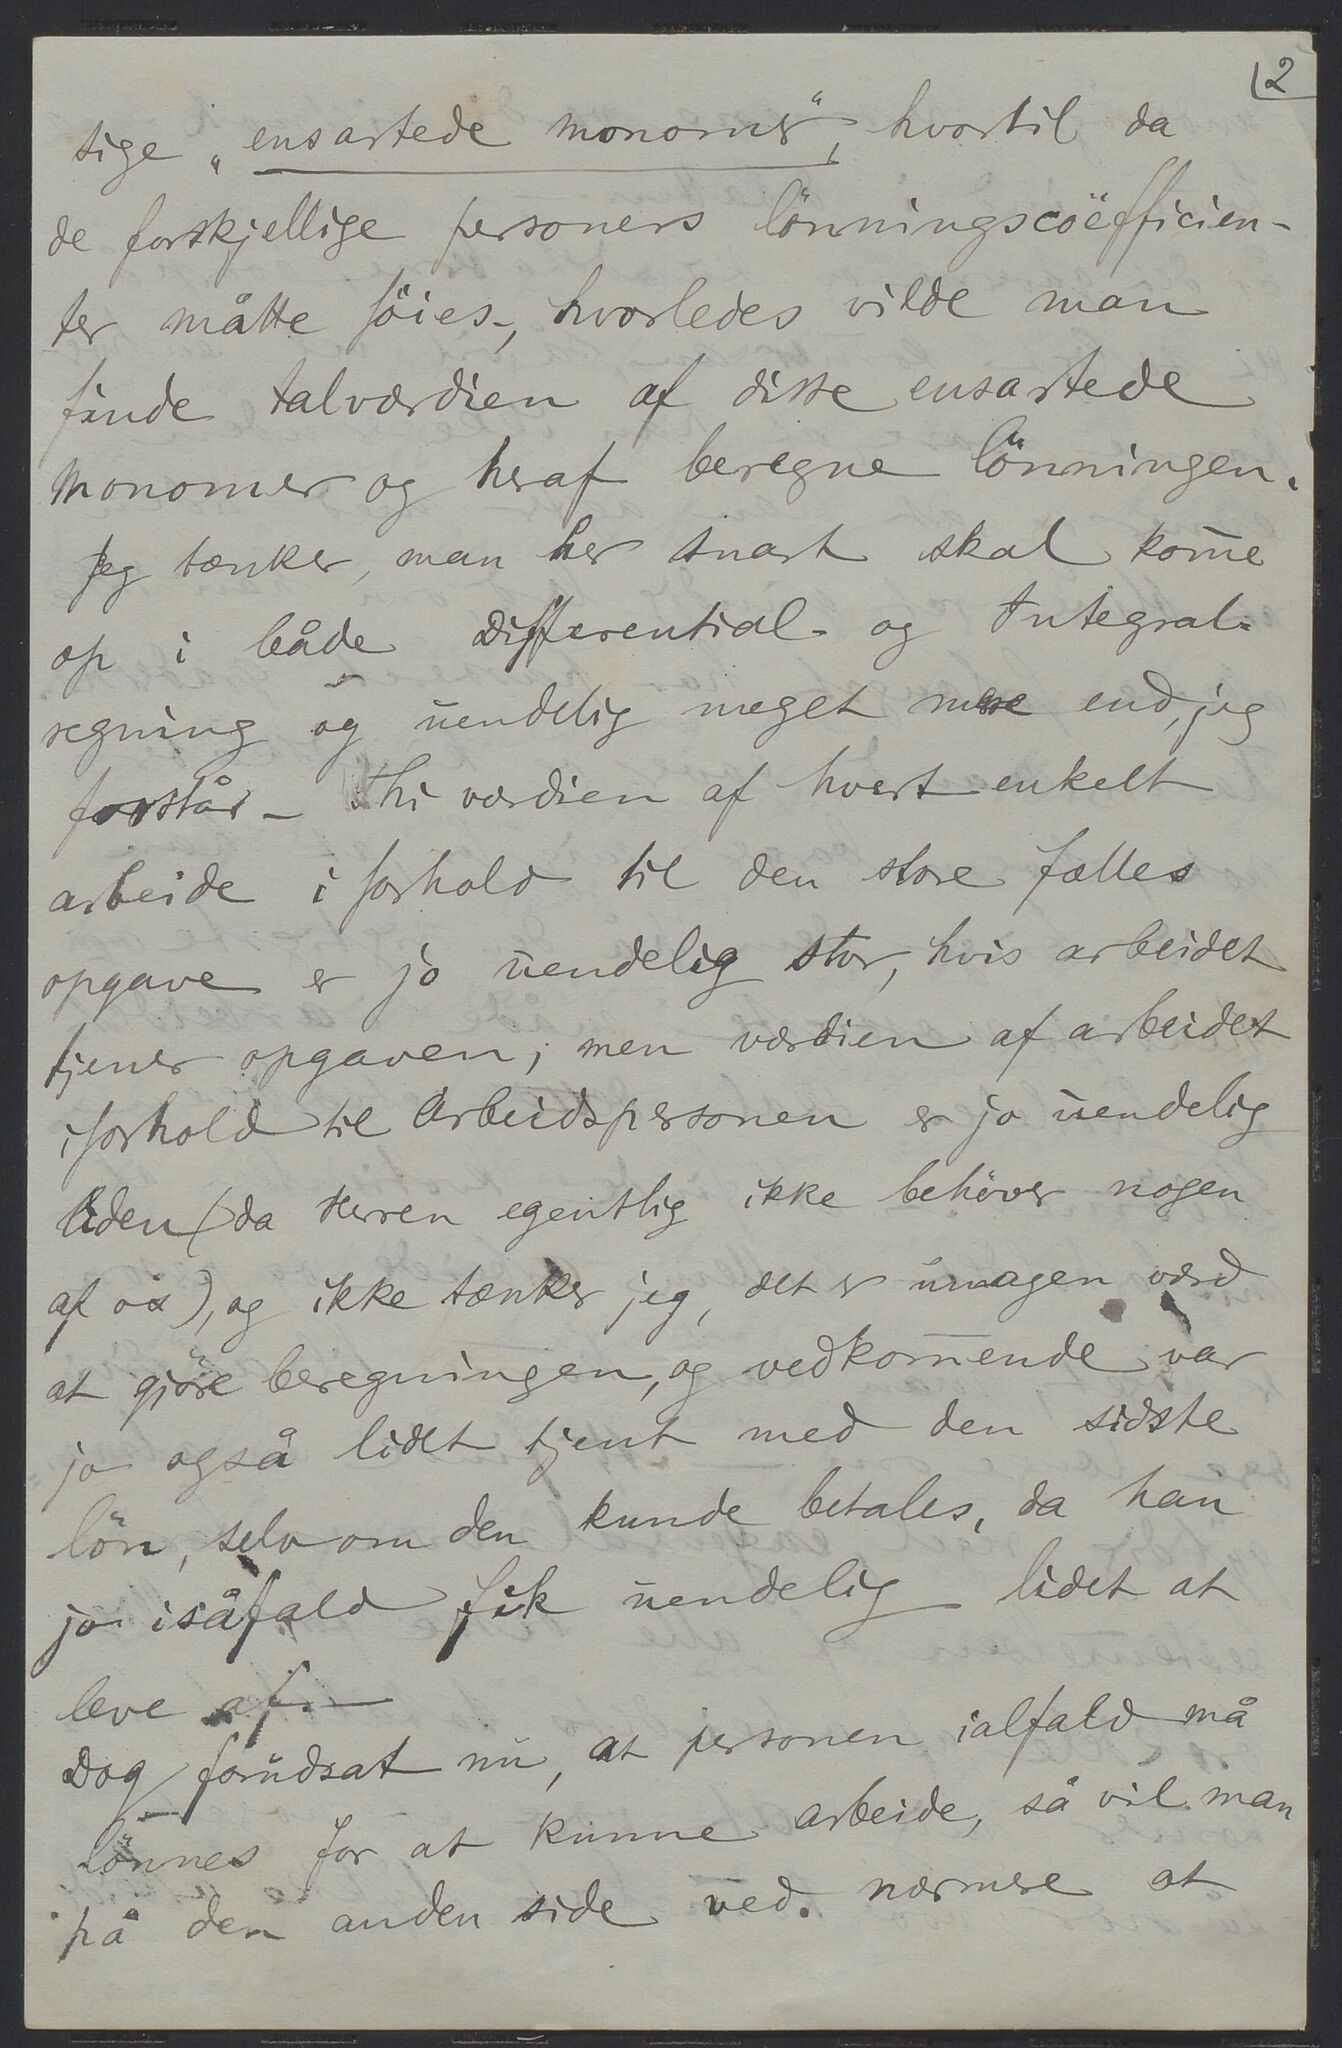 2
sige „ensartede monomer“, hvortil da
de forskjellige personers lönningscöefficien-
ter måtte föies, hvorledes vilde man
finde talværdien af disse ensartede
monomer og heraf beregne lönningen.
Jeg tænker, man her snart skal kom̄e
op i både Differential- og Integral-
regning og uendelig meget mere end jeg
forstår – Thi værdien af hvert enkelt
arbeide i forhold til den store fælles
opgave er jo uendelig stor, hvis arbeidet
tjener opgaven; men værdien af arbeidet
iforhold til Arbeidspersonen er jo uendelig
liden (da Herren egentlig ikke behöver nogen
af os), og ikke tænker jeg, det er umagen værd
at gjöre beregningen, og vedkom̄ende var
jo også lidet tjent med den sidste
lön, selv om den kunde betales, da han
jo isåfald fik uendelig lidet at
leve af. –
Dog forudsat nu, at personen ialfald må
lönnes for at kunne arbeide, så vil man
på den anden side ved. nærmere at